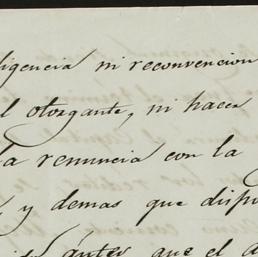 ligencia ni reconvencion
l otorgante, ni hacer
la renuncia con la
, y demas que disp
antes que el a